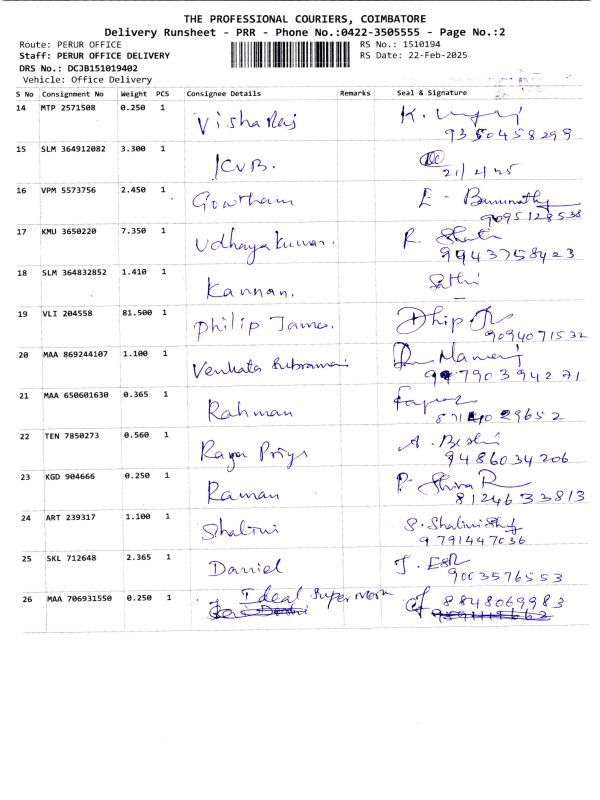 THE PROFESSIONAL COURIERS, COIMBATORE
Delivery Runsheet - PRR - Phone No.:0422-3505555 - Page No.:2
Route: PERUR OFFICE RS No.: 1510194
Staff: PERUR OFFICE DELIVERY RS Date: 22-Feb-2025
DRS No.: DCJB151019402
Vehicle: Office Delivery
S No Consignment No Weight PCS Consignee Details Remarks Seal & Signature
14 MTP 2571508 0.250 1 Visha Raj K.
9350458299
15 SLM 364912082 3.300 1 KVB.
21/4/25
16 VPM 5573756 2.450 1 Gowtham E -
9095128538
17 KMU 3650220 7.350 1 Udhaya kumar. R.
9943758423
18 SLM 364832852 1.410 1 Kannan. Sathi
19 VLI 204558 81.500 1 Philip James. Dhip
9094071532
20 MAA 869244107 1.100 1 Venkata Subramani
790394271
21 MAA 650601630 0.365 1 Rahman
29652
22 TEN 7850273 0.560 1 Priya A.
9486034206
23 KGD 904666 0.250 1 Raman P. Shiva R
8124633813
24 ART 239317 1.100 1 Shalini S. Shalini
9791447036
25 SKL 712648 2.365 1 Daniel J.
9003576553
26 MAA 706931550 0.250 1 Ideal Super 8848069983